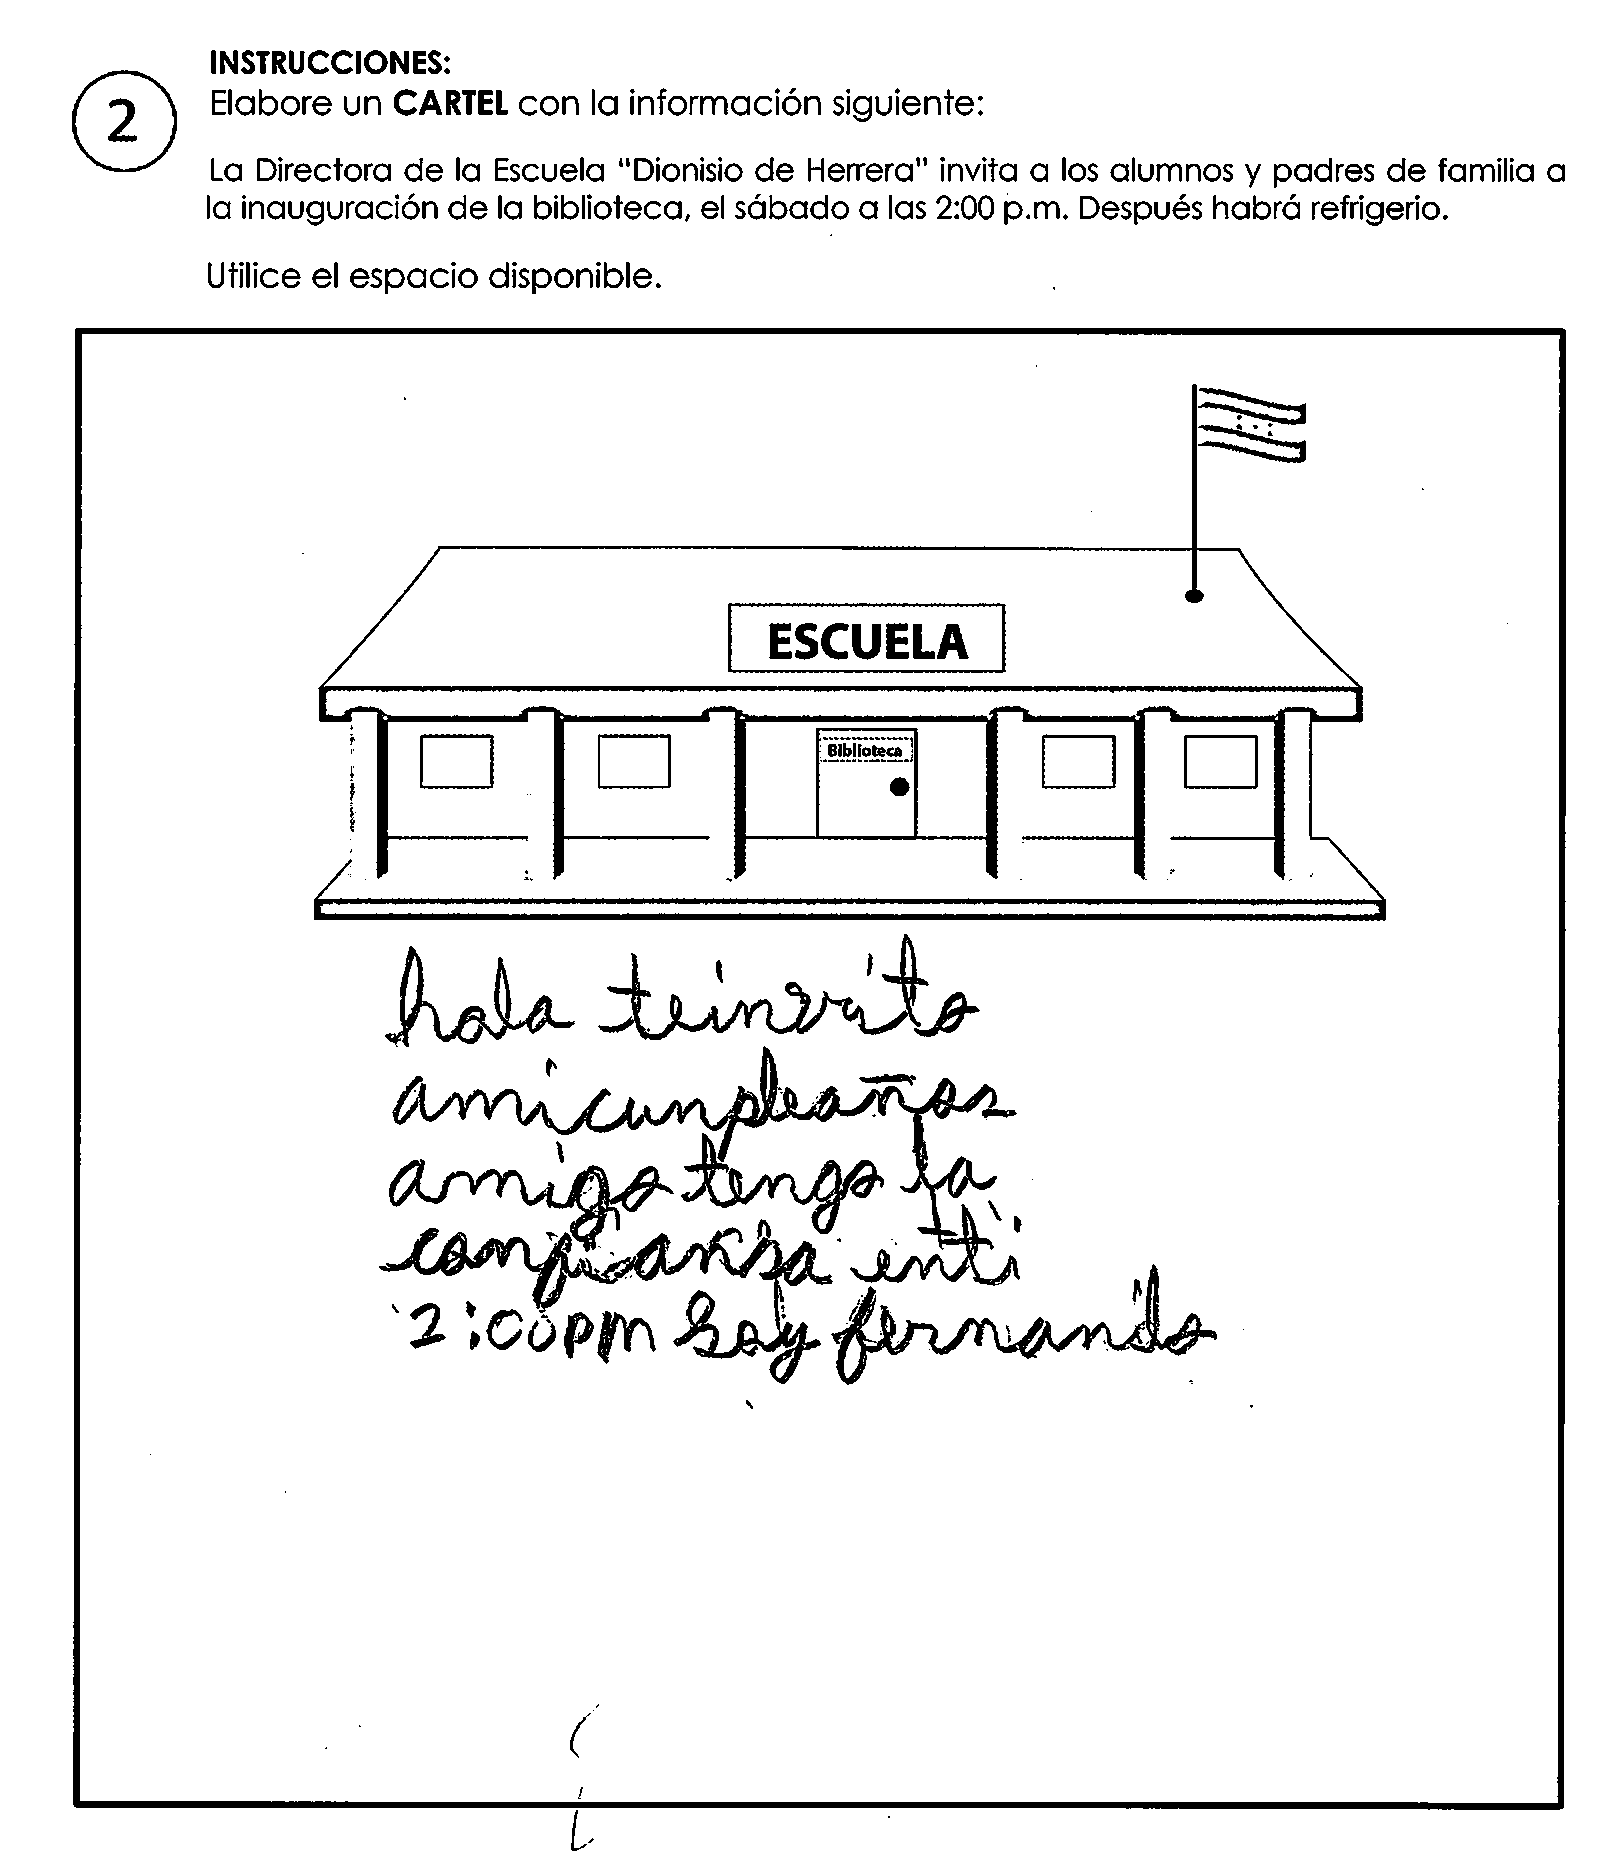 INSTRUCCIONES:
2
Elabore un CARTEL con la información siguiente:
La Directora de la Escuela "Dionisio de Herrera" invita a los alumnos y padres de familia a
la inauguración de la biblioteca, el sábado a las 2:00 p.m. Después habrá refrigerio.
Utilice el espacio disponible.
ESCUELA
Biblioteca
hola teinvito
amicunpleaños
amigo tengo la
confiansa enti
2:00pm Soy fernando